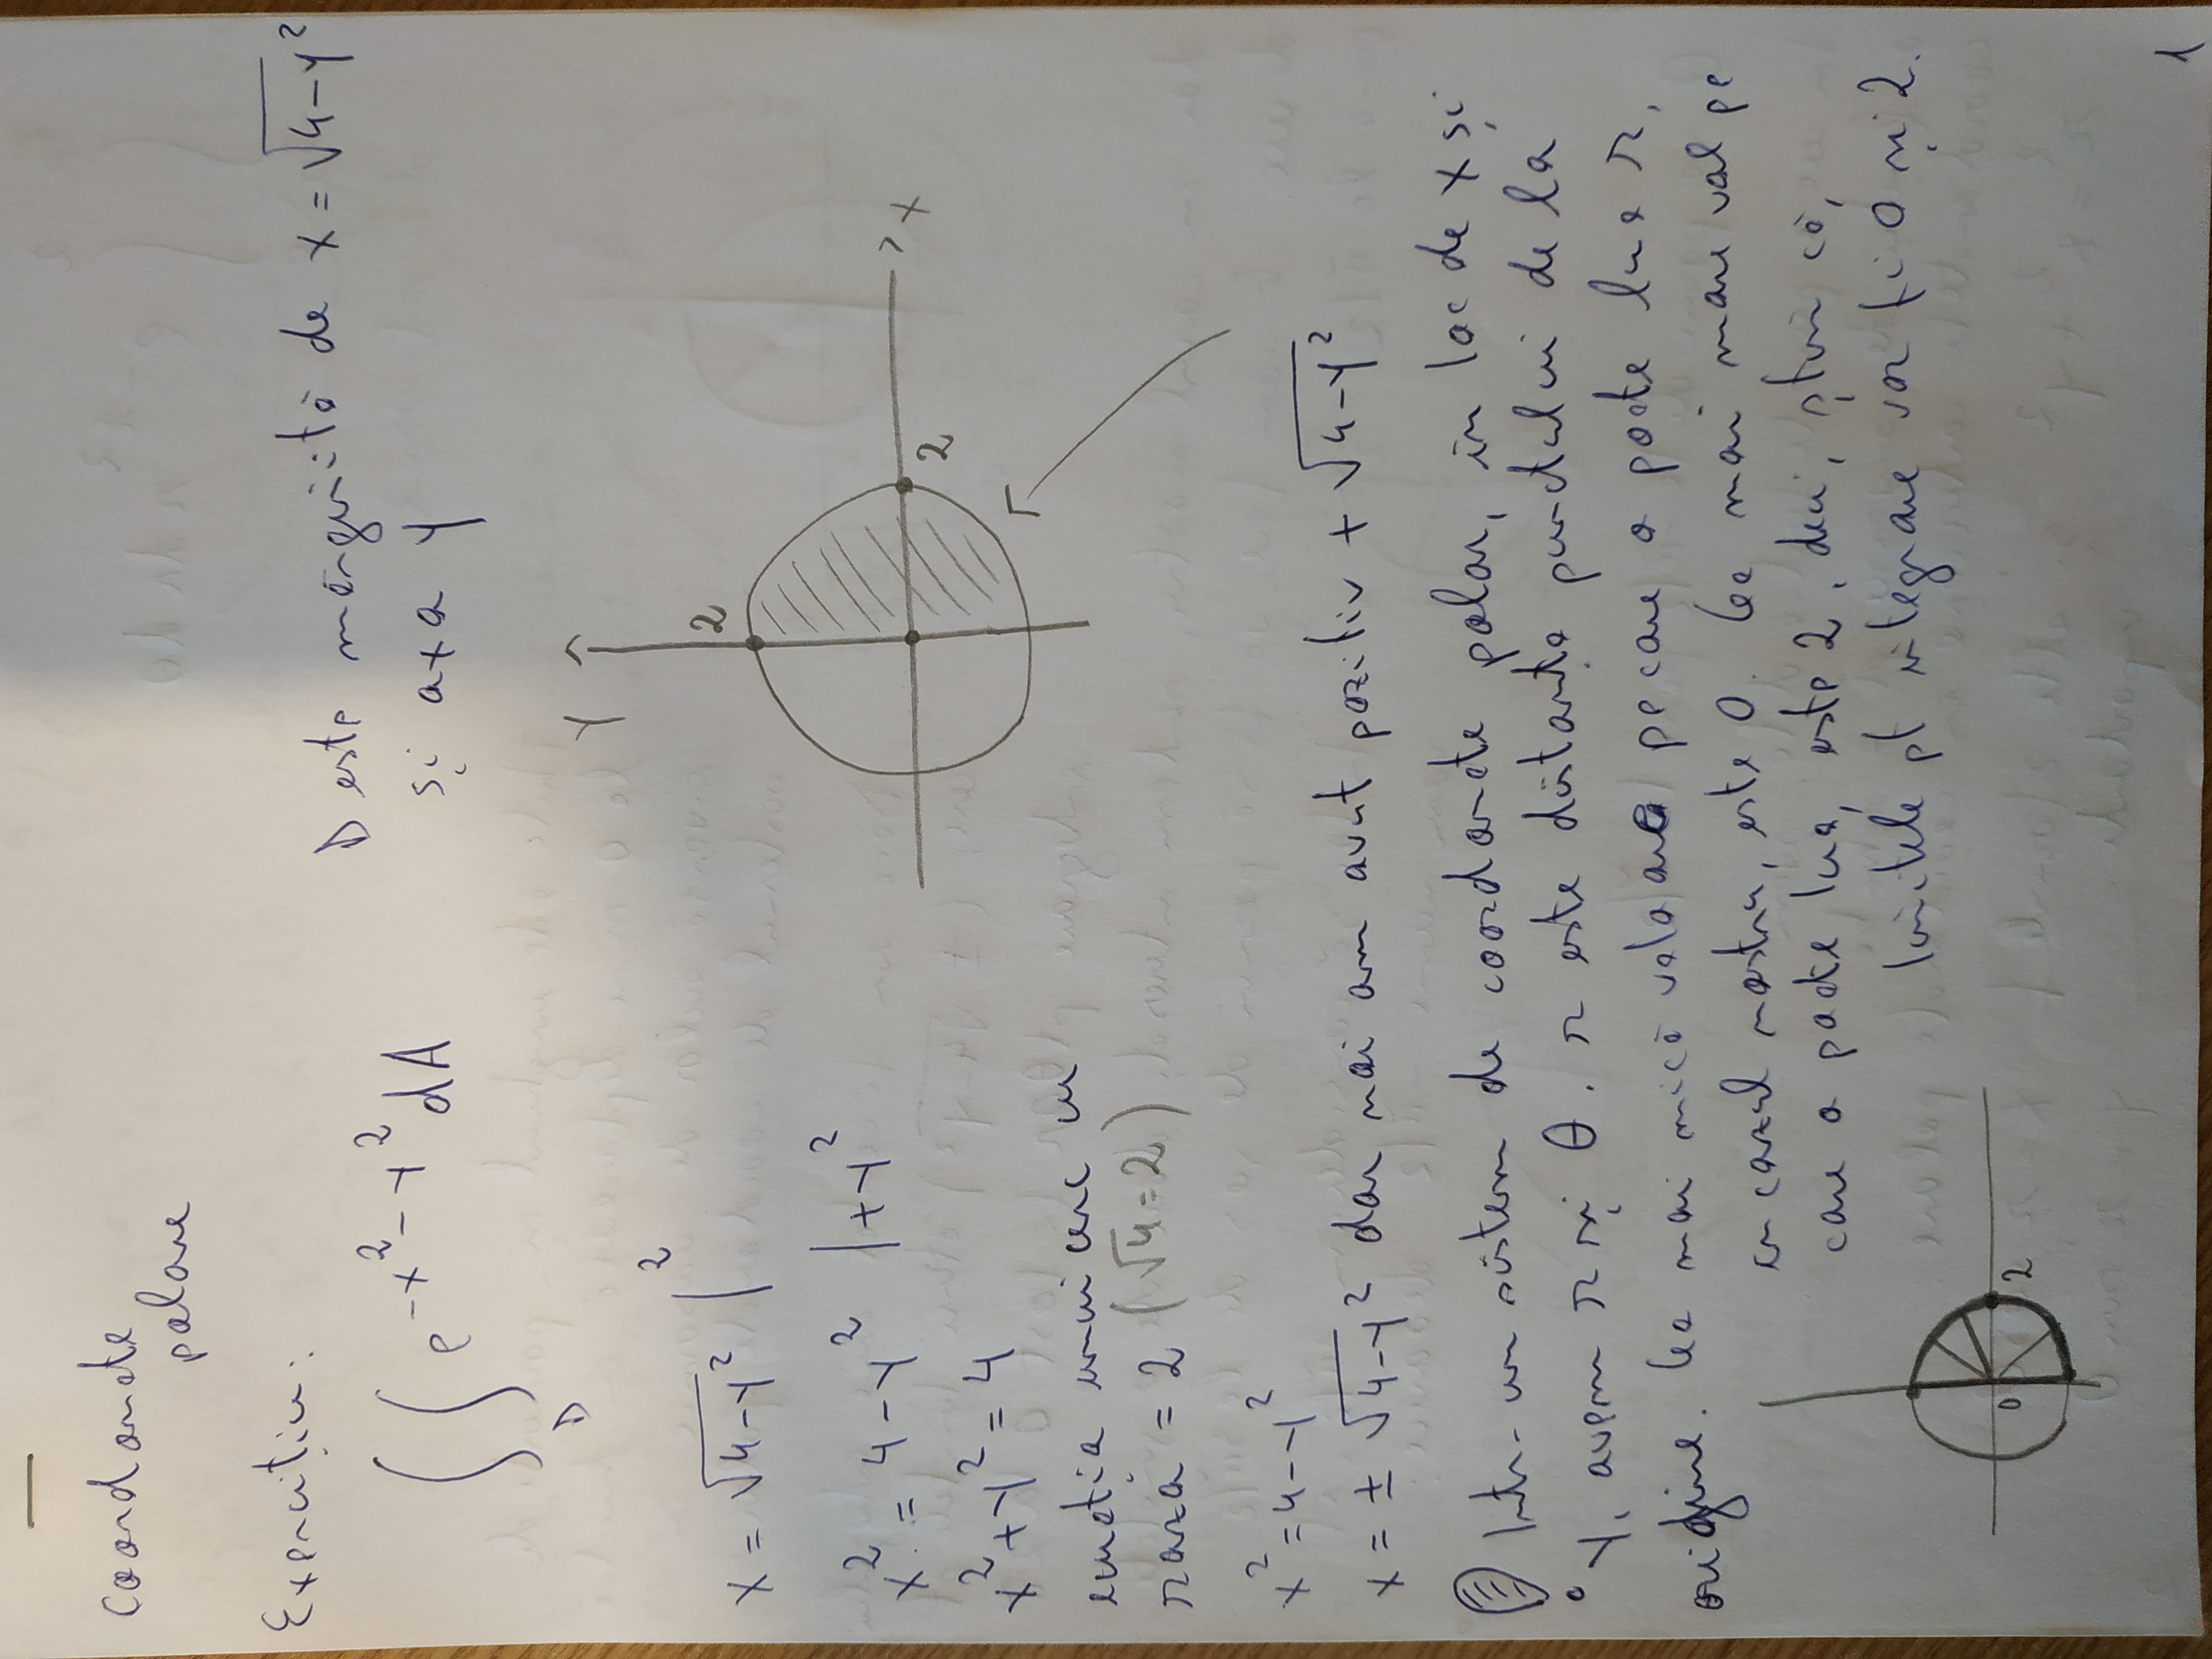 Coordonate
polare
Exercițiu:
∫∫ e^(-x²-y²) dA
D
D este mărginită de x = √(4-y²)
și axa y
Y
2
X
2
x = √(4-y²) |²
x² = 4-y² |+y²
x²+y² = 4
ecuația unui cerc cu
raza = 2 (√4=2)
x² = 4-y²
x = ± √(4-y²) dar noi am avut pozitiv + √(4-y²)
Într-un sistem de coordonate polar, în loc de x și
y, avem r și θ. r este distanța punctului de la
origine. Cea mai mică valoare pe care o poate lua r,
în cazul nostru, este 0. Cea mai mare val pe
care o poate lua, este 2, deci, știm că,
limitele pt integrare vor fi 0 și 2.
0
2
1